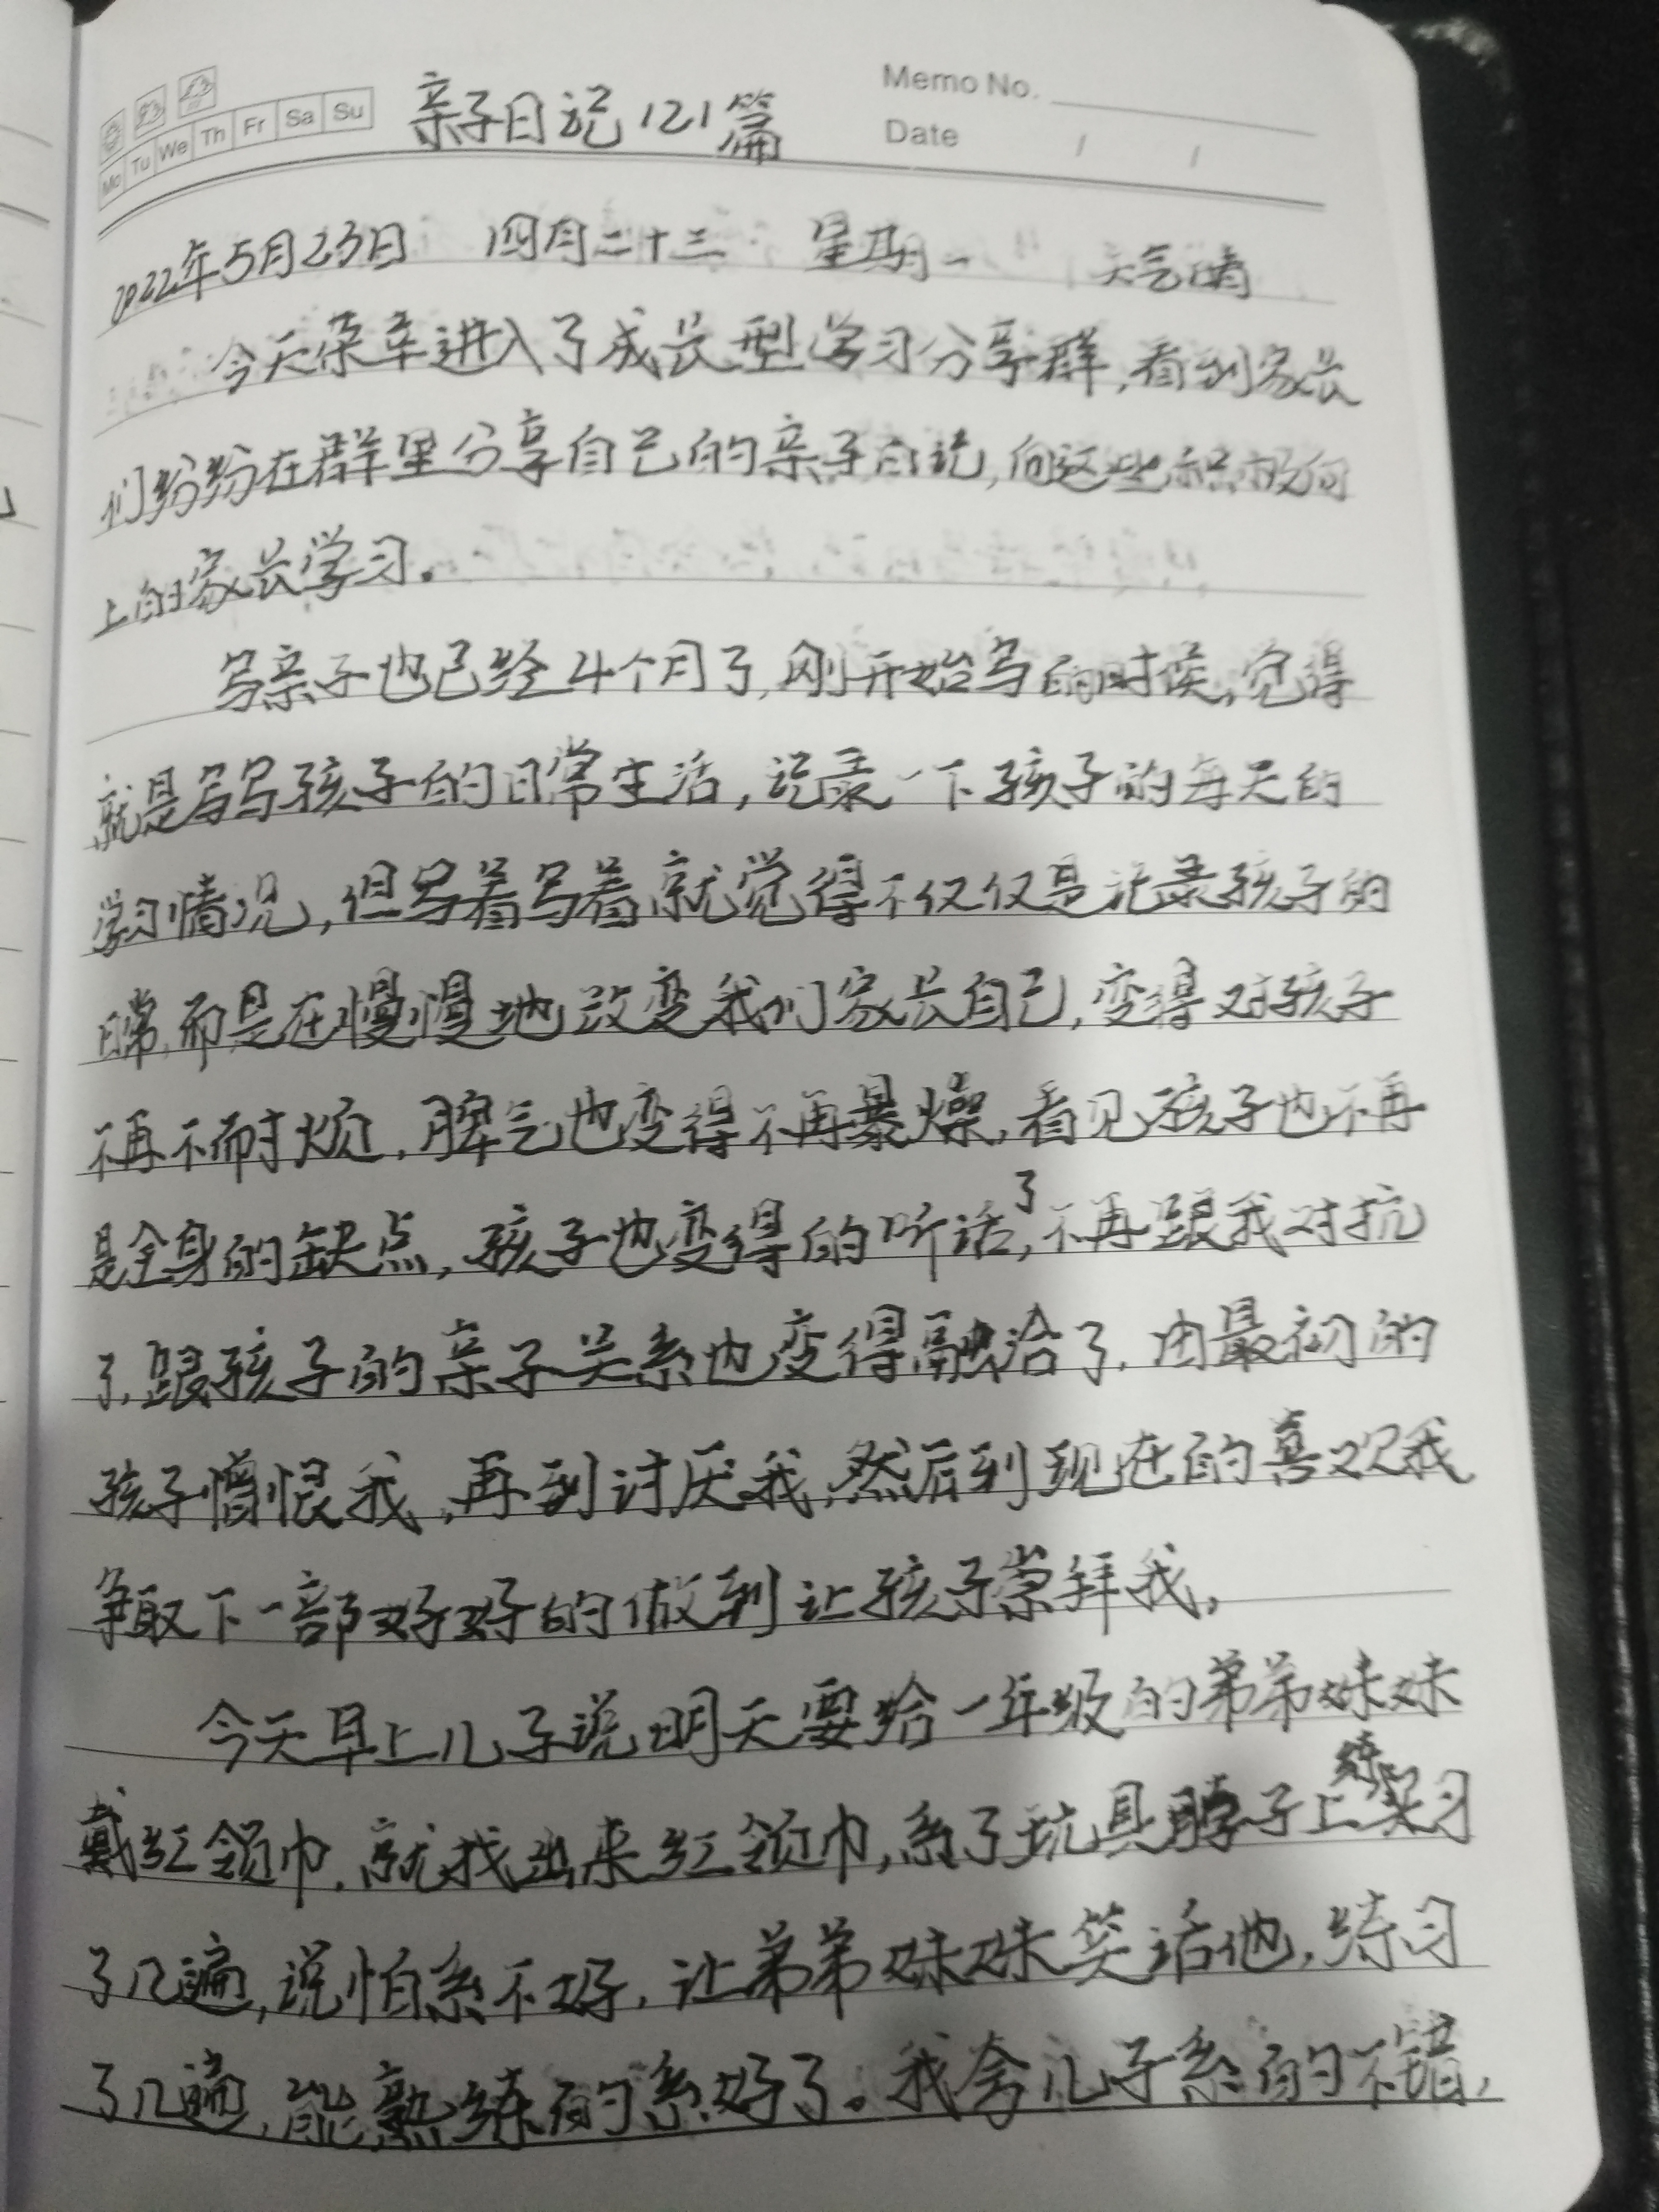 Memo No.
Mo Tu We Th Fr Sa Su
亲子日记121篇
Date / /
2022年5月23日 四月二十三 星期一 天气晴
今天荣幸进入了成长型学习分享群,看到家长
们纷纷在群里分享自己的亲子日记,向这些积极向
上的家长学习。
写亲子也已经4个月了,刚开始写的时候,觉得
就是写写孩子的日常生活,记录一下孩子的每天的
学习情况,但写着写着就觉得不仅仅是记录孩子的
日常,而是在慢慢地改变我们家长自己,变得对孩子
不再不耐烦,脾气也变得不再暴燥,看见孩子也不再
是全身的缺点,孩子也变得的听话了,不再跟我对抗
了,跟孩子的亲子关系也变得融洽了,由最初的
孩子憎恨我,再到讨厌我,然后到现在的喜欢我
争取下一部好好的做到让孩子崇拜我,
今天早上儿子说明天要给一年级的弟弟妹妹
戴红领巾,就找出来红领巾,系了玩具脖子上练习
了几遍,说怕系不好,让弟弟妹妹笑话他,练习
了几遍,能熟练的系好了。我夸儿子系的不错,